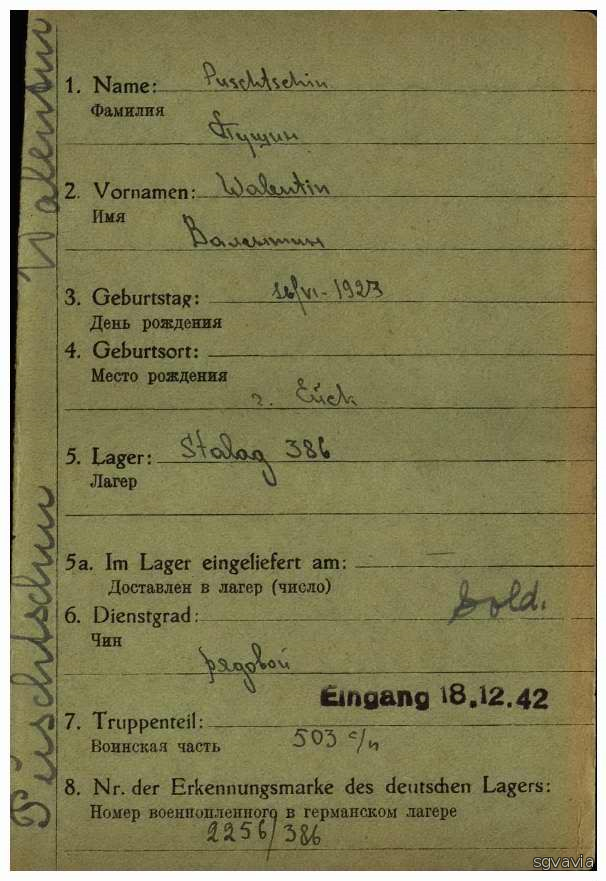 Walentin
Puschtschin
1. Name: Puschtschin
Фамилия
Пущин
2. Vornamen: Walentin
Имя
Валентин
3. Geburtstag: 16/VI-1923
День рождения
4. Geburtsort:
Место рождения
г. Ейск
5. Lager: Stalag 386
Лагер
5a. Im Lager eingeliefert am: —
Доставлен в лагер (число)
6. Dienstgrad: Sold.
Чин
рядовой
Eingang 18.12.42
7. Truppenteil:
Воинская часть
503 с/п
8. Nr. der Erkennungsmarke des deutschen Lagers:
Номер военнопленного в германском лагере
2256/386
sgvavia